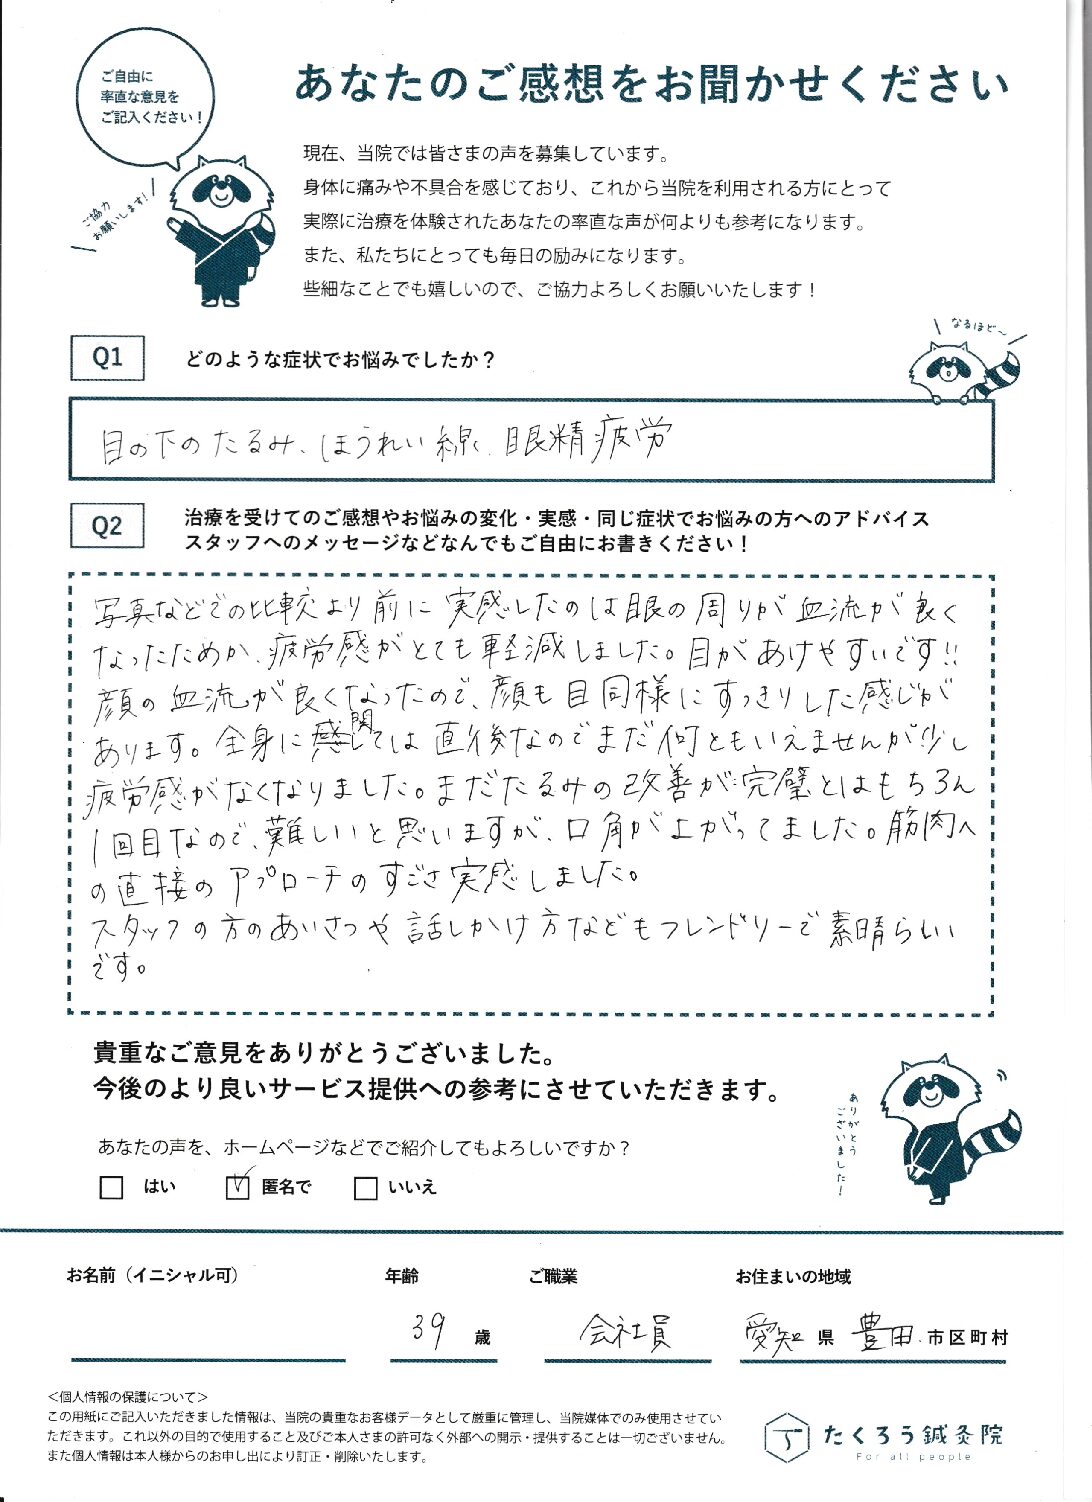 ご自由に
率直な意見を
ご記入ください！
あなたのご感想をお聞かせください
ご協力
お願いします！
現在、当院では皆さまの声を募集しています。
身体に痛みや不具合を感じており、これから当院を利用される方にとって
実際に治療を体験されたあなたの率直な声が何よりも参考になります。
また、私たちにとっても毎日の励みになります。
些細なことでも嬉しいので、ご協力よろしくお願いいたします！
なるほど～
Q1 どのような症状でお悩みでしたか？
目の下のたるみ、ほうれい線、眼精疲労
Q2 治療を受けてのご感想やお悩みの変化・実感・同じ症状でお悩みの方へのアドバイス
スタッフへのメッセージなどなんでもご自由にお書きください！
写真などでの比較より前に実感したのは眼の周りが血流が良く
なったためか、疲労感がとても軽減しました。目があけやすいです!!
顔の血流が良くなったので、顔も目同様にすっきりした感じが
あります。全身に関しては直後なのでまだ何ともいえませんが少し
疲労感がなくなりました。まだたるみの改善が完璧とはもちろん
1回目なので、難しいと思いますが、口角が上がってました。筋肉へ
の直接のアプローチのすごさ実感しました。
スタッフの方のあいさつや話しかけ方などもフレンドリーで素晴らしい
です。
貴重なご意見をありがとうございました。
今後のより良いサービス提供への参考にさせていただきます。
ありがとう
ございました！
あなたの声を、ホームページなどでご紹介してもよろしいですか？
はい 匿名で いいえ
お名前（イニシャル可） 年齢 ご職業 お住まいの地域
39 歳 会社員 愛知 県 豊田 市区町村
＜個人情報の保護について＞
この用紙にご記入いただきました情報は、当院の貴重なお客様データとして厳重に管理し、当院媒体でのみ使用させてい
ただきます。これ以外の目的で使用すること及びご本人さまの許可なく外部への開示・提供することは一切ございません。
また個人情報は本人様からのお申し出により訂正・削除いたします。
たくろう鍼灸院
For all people